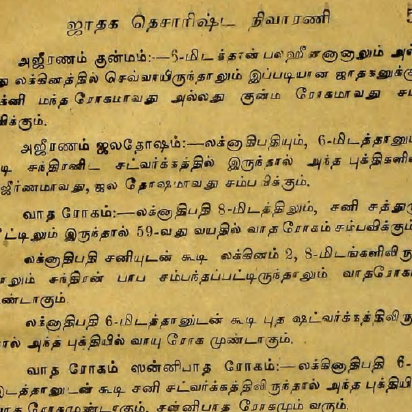 ஜாதக தெசாரிஷ்ட நிவாரணி
அஜீரணம் குன்மம்:—5-மிடத்தான் பலஹீனனானாலும்
து லக்கினத்தில் செவ்வாயிருந்தாலும் இப்படியான ஜாதகனுக்கு
க்னி மந்த ரோகமாவது அல்லது குன்ம ரோகமாவது சம்
விக்கும்.
அஜீரணம் ஜலதோஷம்:—லக்னாதிபதியும், 6-மிடத்தானும்
டி சந்திரனிட சட்வர்க்கத்தில் இருந்தால் அந்த புக்திகளில்
ஜீர்ணமாவது, ஜல தோஷமாவது சம்பவிக்கும்.
வாத ரோகம்:—லக்னாதிபதி 8-மிடத்திலும், சனி சத்துரு
ட்டிலும் இருந்தால் 59-வது வயதில் வாத ரோகம் சம்பவிக்கும்.
லக்னாதிபதி சனியுடன் கூடி லக்கினம் 2, 8-மிடங்களிலிரு
தாலும் சந்திரன் பாப சம்பந்தப்பட்டிருந்தாலும் வாதரோக
ண்டாகும்.
லக்னாதிபதி 6-மிடத்தானுடன் கூடி புத ஷட்வர்க்கத்திலிரு
ால் அந்த புக்தியில் வாயு ரோக முண்டாகும்.
வாத ரோகம் ஸன்னிபாத ரோகம்:—லக்கினாதிபதி 6-
டத்தானுடன் கூடி சனி சட்வர்க்கத்திலிருந்தால் அந்த புக்தியி
த ரோகமுண்டாகும். சன்னிபாத ரோகமும் வரும்.